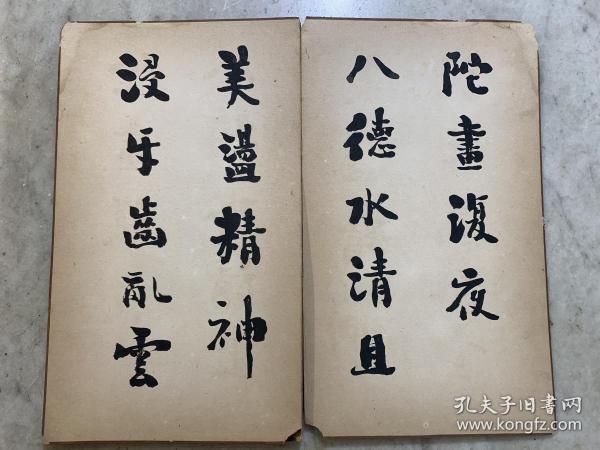 陀畫復夜
八德水清且
美盪精神
浸牙齒亂雲
孔夫子旧書网
www.kongfz.com